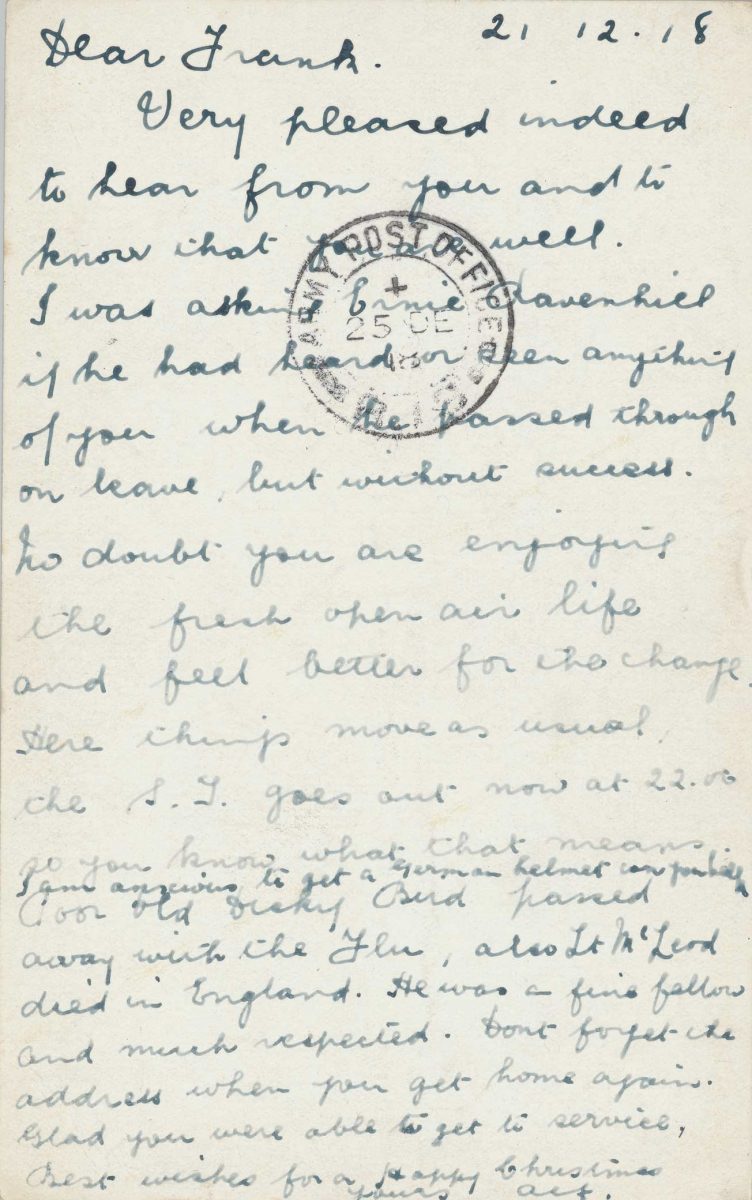 21.12.18
Dear Frank.
Very pleased indeed
to hear from you and to
know that you are well.
I was askin' Ernie Ravenhill
if he had heard or seen anything
of you when he passed through
on leave, but without success.
No doubt you are enjoying
the fresh open air life
and feel better for the change.
Here things move as usual,
the S.T. goes out now at 22.00
so you know what that means.
I am anxious to get a German helmet can you help
Poor old Dicky Bird passed
away with the Flu, also Lt McLeod
died in England. He was a fine fellow
and much respected. Dont forget the
address when you get home again.
Glad you were able to get to service,
Best wishes for a Happy Christmas
yours Alf.
ARMY POST OFFICE
25 DE
18